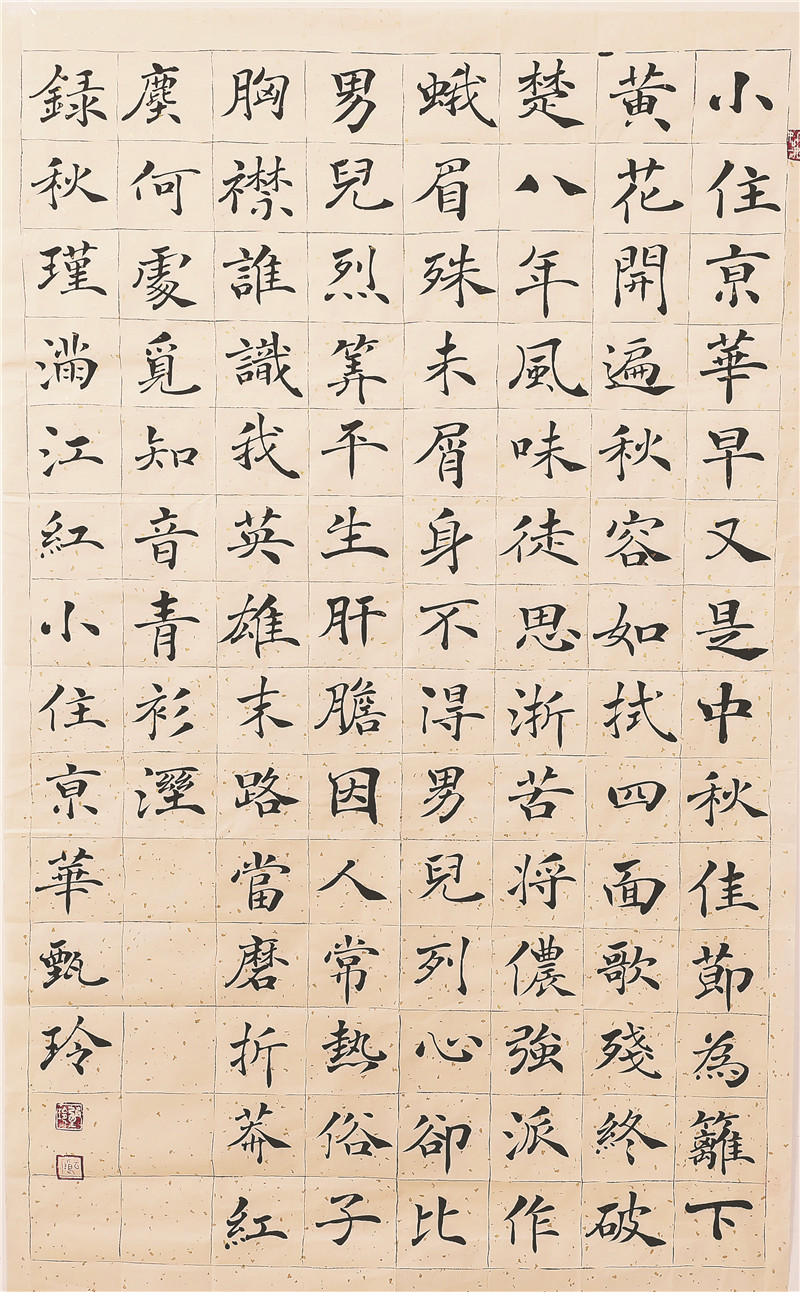 小住京華早又是中秋佳節為籬下
黃花開遍秋容如拭四面歌殘終破
楚八年風味徒思浙苦將儂強派作
蛾眉殊未屑身不得男兒列心卻比
男兒烈算平生肝膽因人常熱俗子
胸襟誰識我英雄末路當磨折莽紅
塵何處覓知音青衫溼
錄秋瑾滿江紅小住京華甄玲